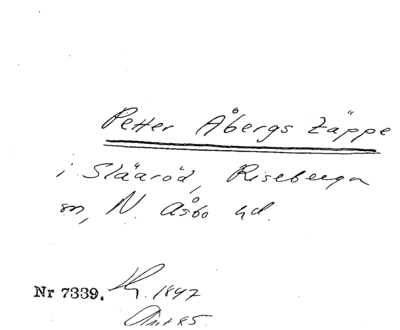 Petter Åbergs täppe
i Slääröd, Riseberga
sn, N. Åsbo hd.
Nr 7339. 1847